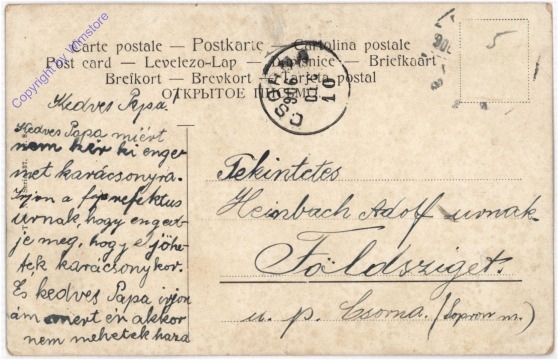 Carte postale — Postkarte — Cartolina postale
Post card — Levelezo-Lap — Dopisnice — Briefkaart
Brefkort — Brevkort — Tarjeta postal
ОТКРЫТОЕ ПИСЬМО
5
906
10
Copyright by Wimstore
Kedves Papa!
Kedves Papa miért
nem kér ki enge
met karácsonyra.
Írjon a főprefektus
urnak, hogy enged-
je meg, hogy el jöhe-
tek karácsonykor.
És kedves Papa irjon
ám mert én akkor
nem mehetek haza
Tekintetes
Heimbach Adolf urnak
Földsziget.
u. p. Csorna. (Sopron m.)